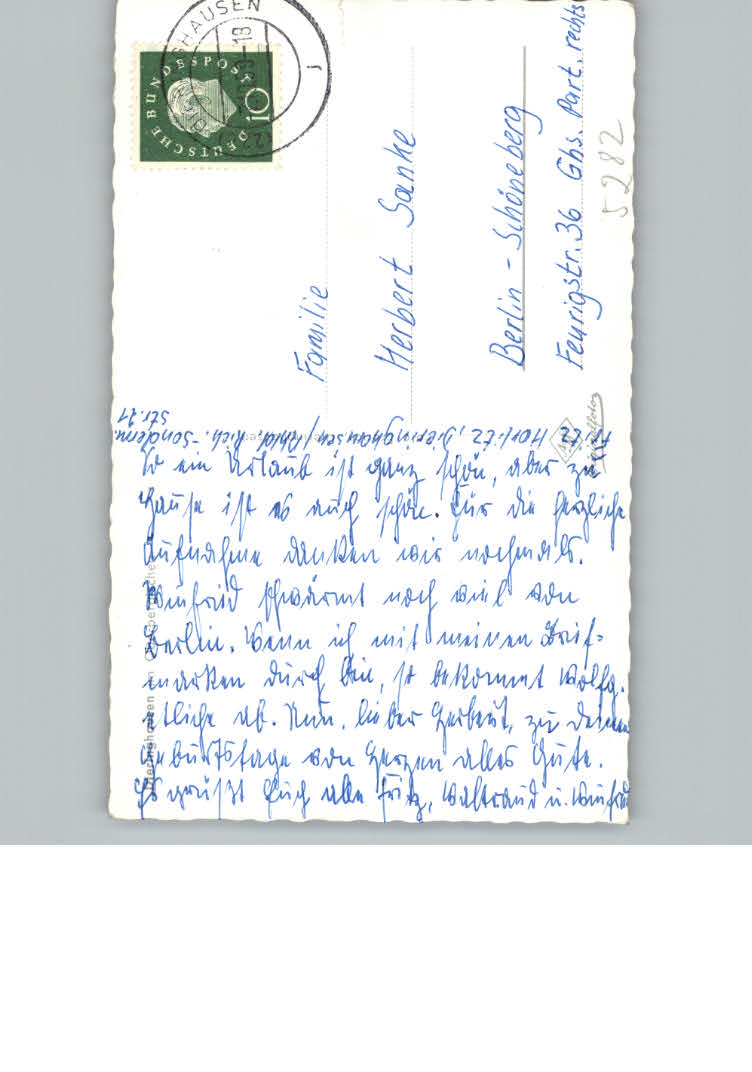 DEUTSCHE BUNDESPOST
10
DEUTSCHE
GHAUSEN
-18
Familie
Herbert Sanke
Berlin - Schöneberg
Feurigstr. 36 Ghs. Part. rechts
5282
Fritz Dieringhausen / Rhld. Rich.-Sondermstr. 21
So ein Urlaub ist ganz schön, aber zu
Hause ist es auch schön. Für die herzliche
Aufnahme danken wir nochmals.
Winfried schwärmt noch viel von
Berlin. Wenn ich mit meinen Brief-
marken durch bin, so bekommt Wolfg.
etliche ab. Nun, lieber Herbert, zu deinem
Geburtstage von Herzen alles Gute.
Es grüßt Euch alle Fritz, Waltraud u. Winfried
Dieringhausen